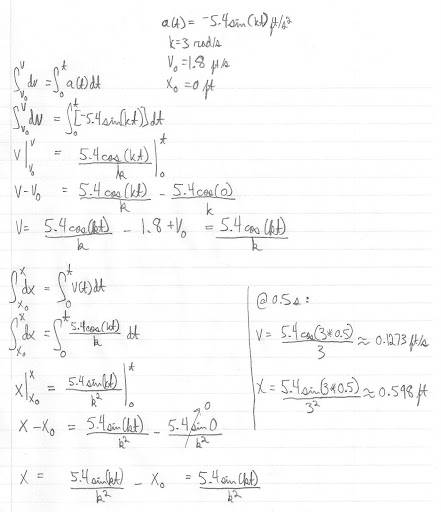 a(t) = -5.4sin(kt) ft/s²
k=3 rad/s
V₀=1.8 ft/s
X₀=0 ft
∫_{V₀}^{V} dv = ∫_0^t a(t)dt
∫_{V₀}^{V} dv = ∫_0^t [-5.4sin(kt)]dt
V|_{V₀}^{V} = 5.4cos(kt)/k |_0^t
V-V₀ = 5.4cos(kt)/k - 5.4cos(0)/k
V= 5.4cos(kt)/k - 1.8 + V₀ = 5.4cos(kt)/k
∫_{X₀}^{X} dx = ∫_0^t V(t)dt
∫_{X₀}^{X} dx = ∫_0^t 5.4cos(kt)/k dt
X|_{X₀}^{X} = 5.4sin(kt)/k² |_0^t
X-X₀ = 5.4sin(kt)/k² - 5.4sin0/k² 0
X = 5.4sin(kt)/k² - X₀ = 5.4sin(kt)/k²
@ 0.5s:
V= 5.4cos(3*0.5)/3 ≈ 0.1273 ft/s
X= 5.4sin(3*0.5)/3² ≈ 0.598 ft